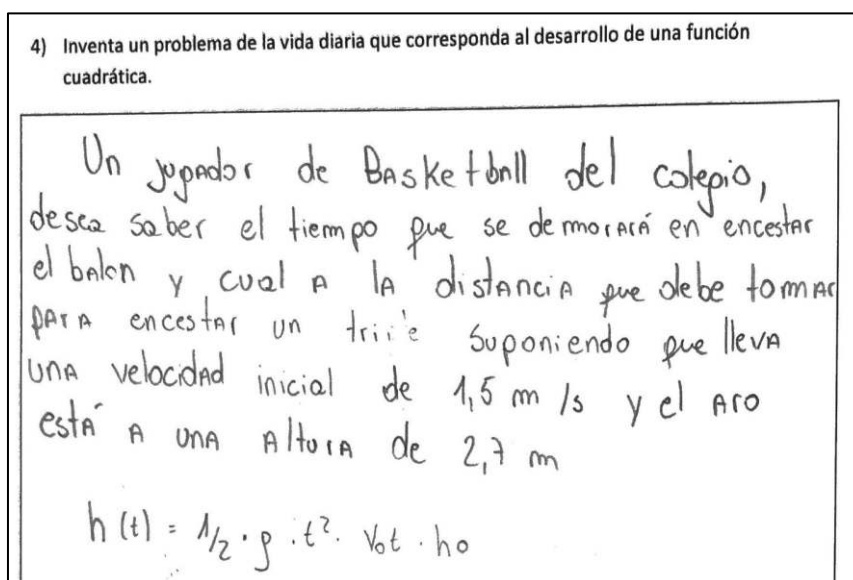 4) Inventa un problema de la vida diaria que corresponda al desarrollo de una función
cuadrática.
Un jugador de Basketball del colegio,
desea saber el tiempo que se demorará en encestar
el balon y cual A lA distAnciA que debe tomAr
pArA encestAr un suponiendo que llevA
UnA velocidAd inicial de 1,5 m/s y el Aro
está A unA AlturA de 2,7 m
h(t) = 1/2 · g · t² · Vot · ho